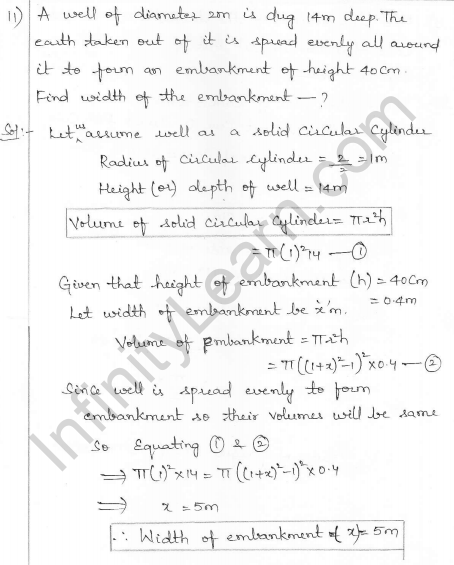 11) A well of diameter 2m is dug 14m deep. The
earth taken out of it is spread evenly all around
it to form an embankment of height 40cm.
Find width of the embankment — ?
Sol:- Let us assume well as a solid circular cylinder
Radius of circular cylinder = 2/2 = 1m
Height (or) depth of well = 14m
Volume of solid circular cylinder = πr²h
= π(1)²14 — ①
Given that height of embankment (h) = 40cm
= 0.4m
Let width of embankment be 'x' m.
Volume of embankment = πr²h
= π((1+x)²-1)²×0.4 — ②
Since well is spread evenly to form
embankment so their volumes will be same
So Equating ① & ②
⇒ π(1)²×14 = π((1+x)²-1)²×0.4
⇒ x = 5m
∴ Width of embankment of (x) = 5m
InfinityLearn.com